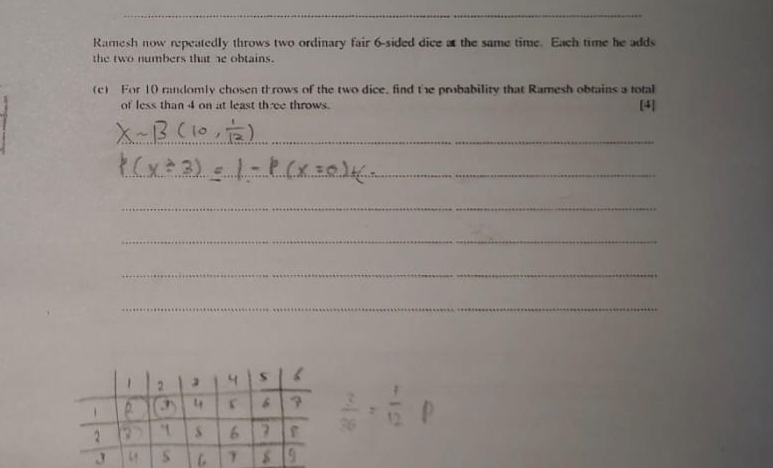 Ramesh now repeatedly throws two ordinary fair 6-sided dice at the same time. Each time he adds
the two numbers that he obtains.
(c) For 10 randomly chosen throws of the two dice, find the probability that Ramesh obtains a total
of less than 4 on at least three throws. [4]
X ~ B (10, 1/12)
P(X ≥ 3) = 1 - P(X=0)
1 2 3 4 5 6
1 2 3 4 5 6 7
2 3 4 5 6 7 8
3 4 5 6 7 8 9
3/36 = 1/12 P